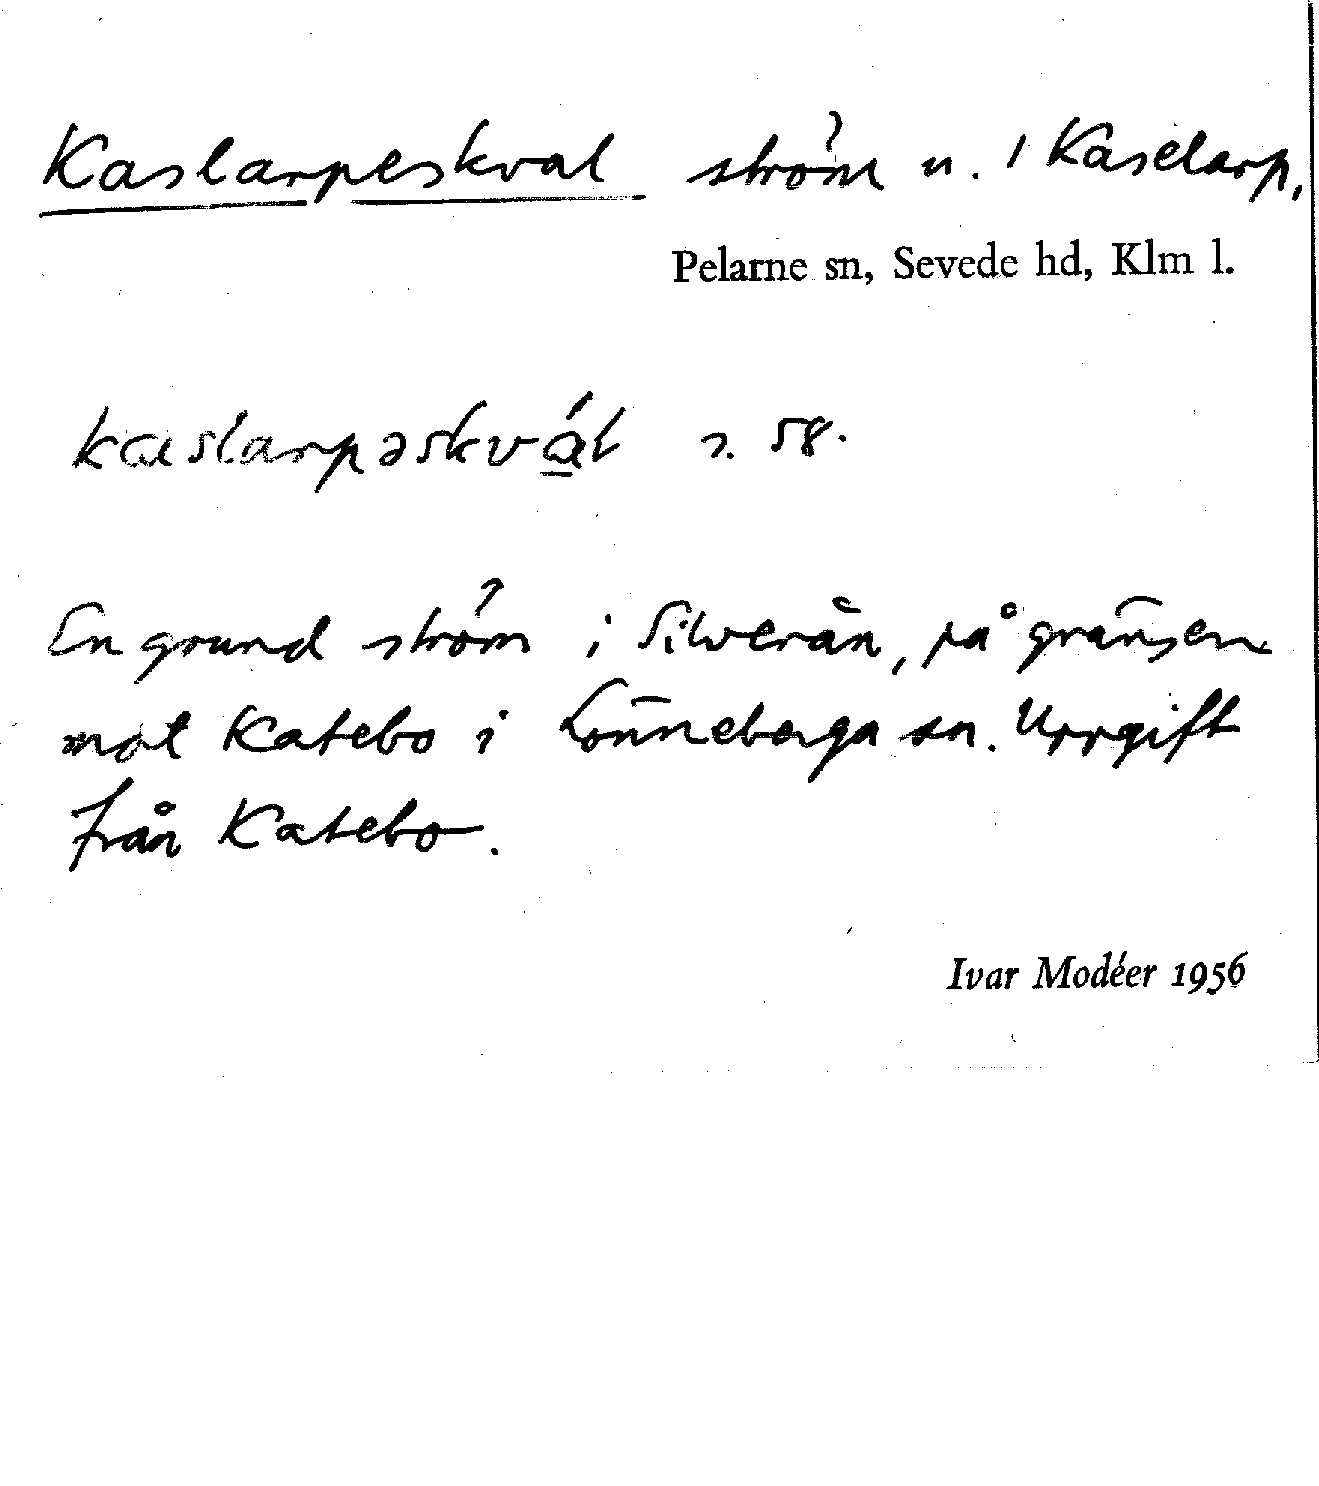 Kaslarpeskval ström u. 1 Kaselarp,
Pelarne sn, Sevede hd, Klm l.
kaslarpəskvál s. 58.
En grund ström i Silverån, på gränsen
mot Katebo i Lönneberga sn. Uppgift
från Katebo.
Ivar Modéer 1956